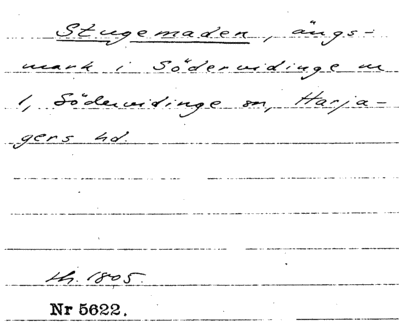 Stugemaden, ängs-
mark i Södervidinge n
1, Södervidinge sn, Harja-
gers hd.
lh. 1805.
Nr 5622.